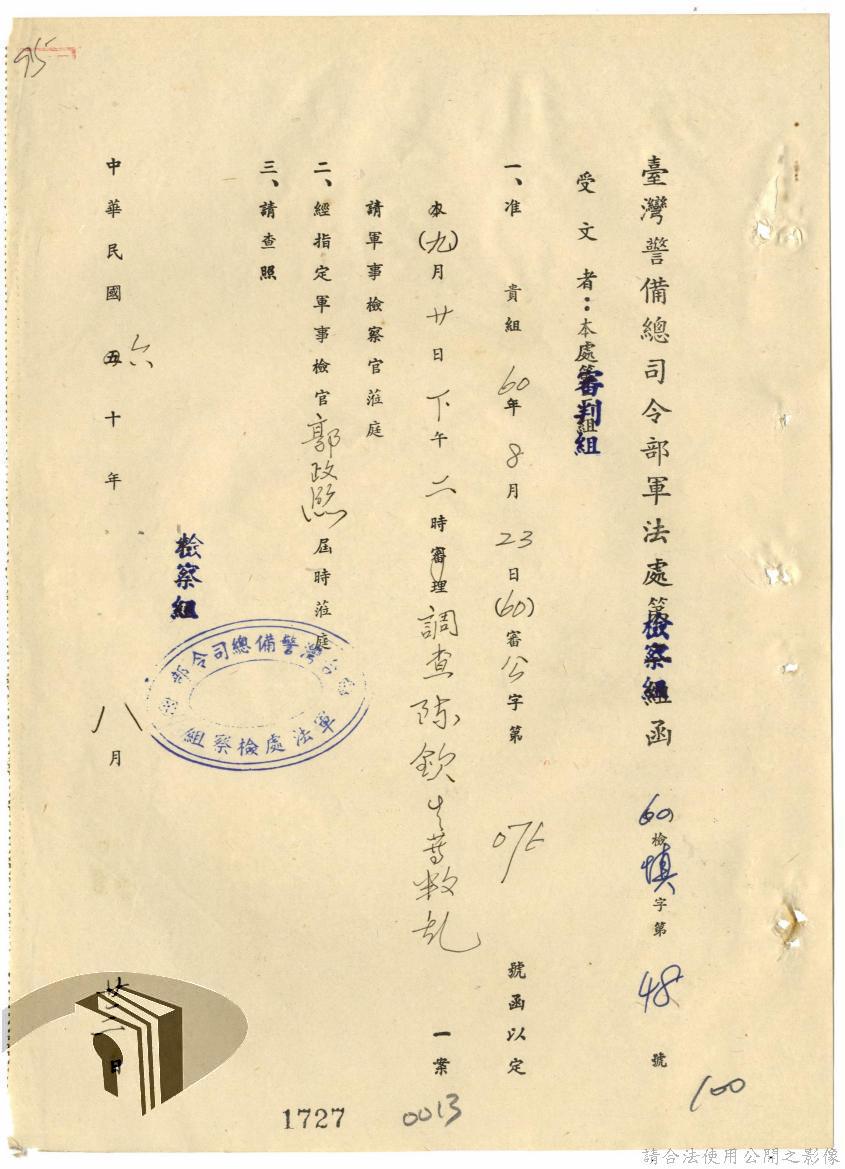 臺灣警備總司令部軍法處檢察組函 60檢慎字第48號
受文者：本處審判組
一、准 貴組60年8月23日(60)審公字第 號函以定
本(九)月廿日下午二時審理調查陳欽生等叛乱一案
請軍事檢察官蒞庭
二、經指定軍事檢官郭政熙屆時蒞庭
三、請查照
檢察組
台灣警備總司令部
軍法處檢察組
中華民國六十年八月 日
95
100
1727
0013
請合法使用公開之影像